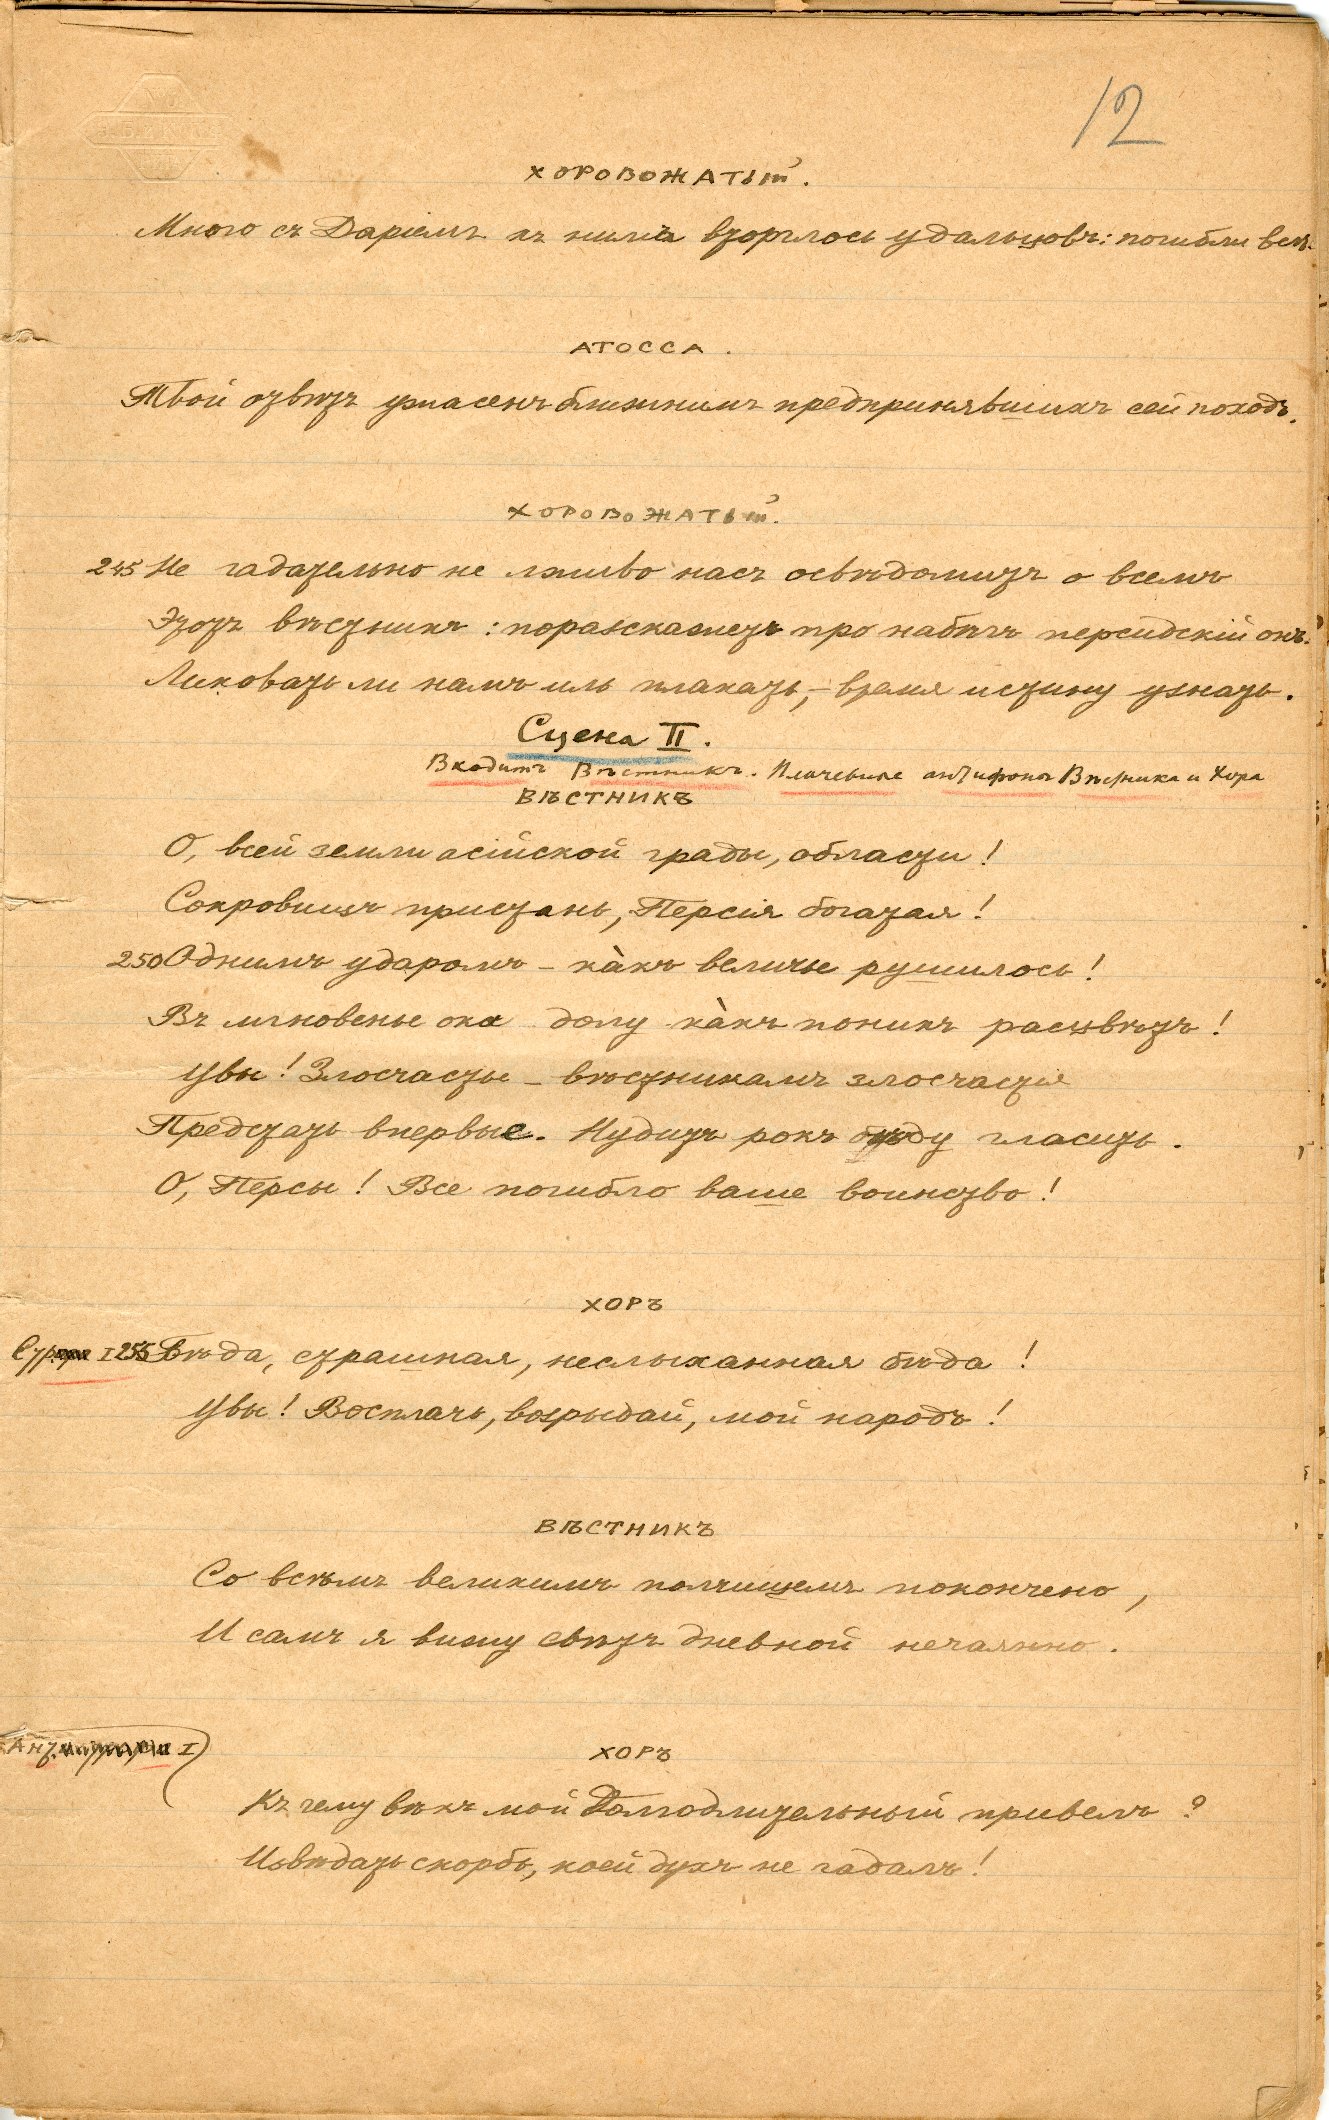 12
ХОРОВОЖАТЫЙ.
Много съ Даріемъ къ нимъ вторглось удальцовъ: погибли всѣ.
АТОССА.
Твой отвѣтъ ужасенъ ближнимъ предпринявшихъ сей походъ.
ХОРОВОЖАТЫЙ.
245 Не гадательно не лживо насъ освѣдомитъ о всемъ
Этотъ вѣстникъ: поразскажетъ про набѣгъ персидскій онъ.
Ликовать ли намъ иль плакать, – время истину узнать.
Сцена II.
Входитъ Вѣстникъ. Плачевные антифоны Вѣстника и Хора
ВѢСТНИКЪ
О, всей земли асійской грады, области!
Сокровищъ пристань, Персія богатая!
250 Однимъ ударомъ – кàкъ величье рушилось!
Въ мгновенье ока долу кàкъ поникъ расцвѣтъ!
Увы! Злосчастье – вѣстникамъ злосчастія
Предстать впервые. Нудитъ рокъ бѣду гласить.
О, Персы! Все погибло ваше воинство!
ХОРЪ
Стр. I 255 Бѣда, страшная, неслыханная бѣда!
Увы! Восплачь, возрыдай, мой народъ!
ВѢСТНИКЪ
Со всѣмъ великимъ полчищемъ покончено,
И самъ я вижу свѣтъ дневной нечаянно.
Ант. I
ХОРЪ
Къ чему вѣкъ мой долгодлительный привелъ?
Извѣдать скорбь, коей духъ не гадалъ!